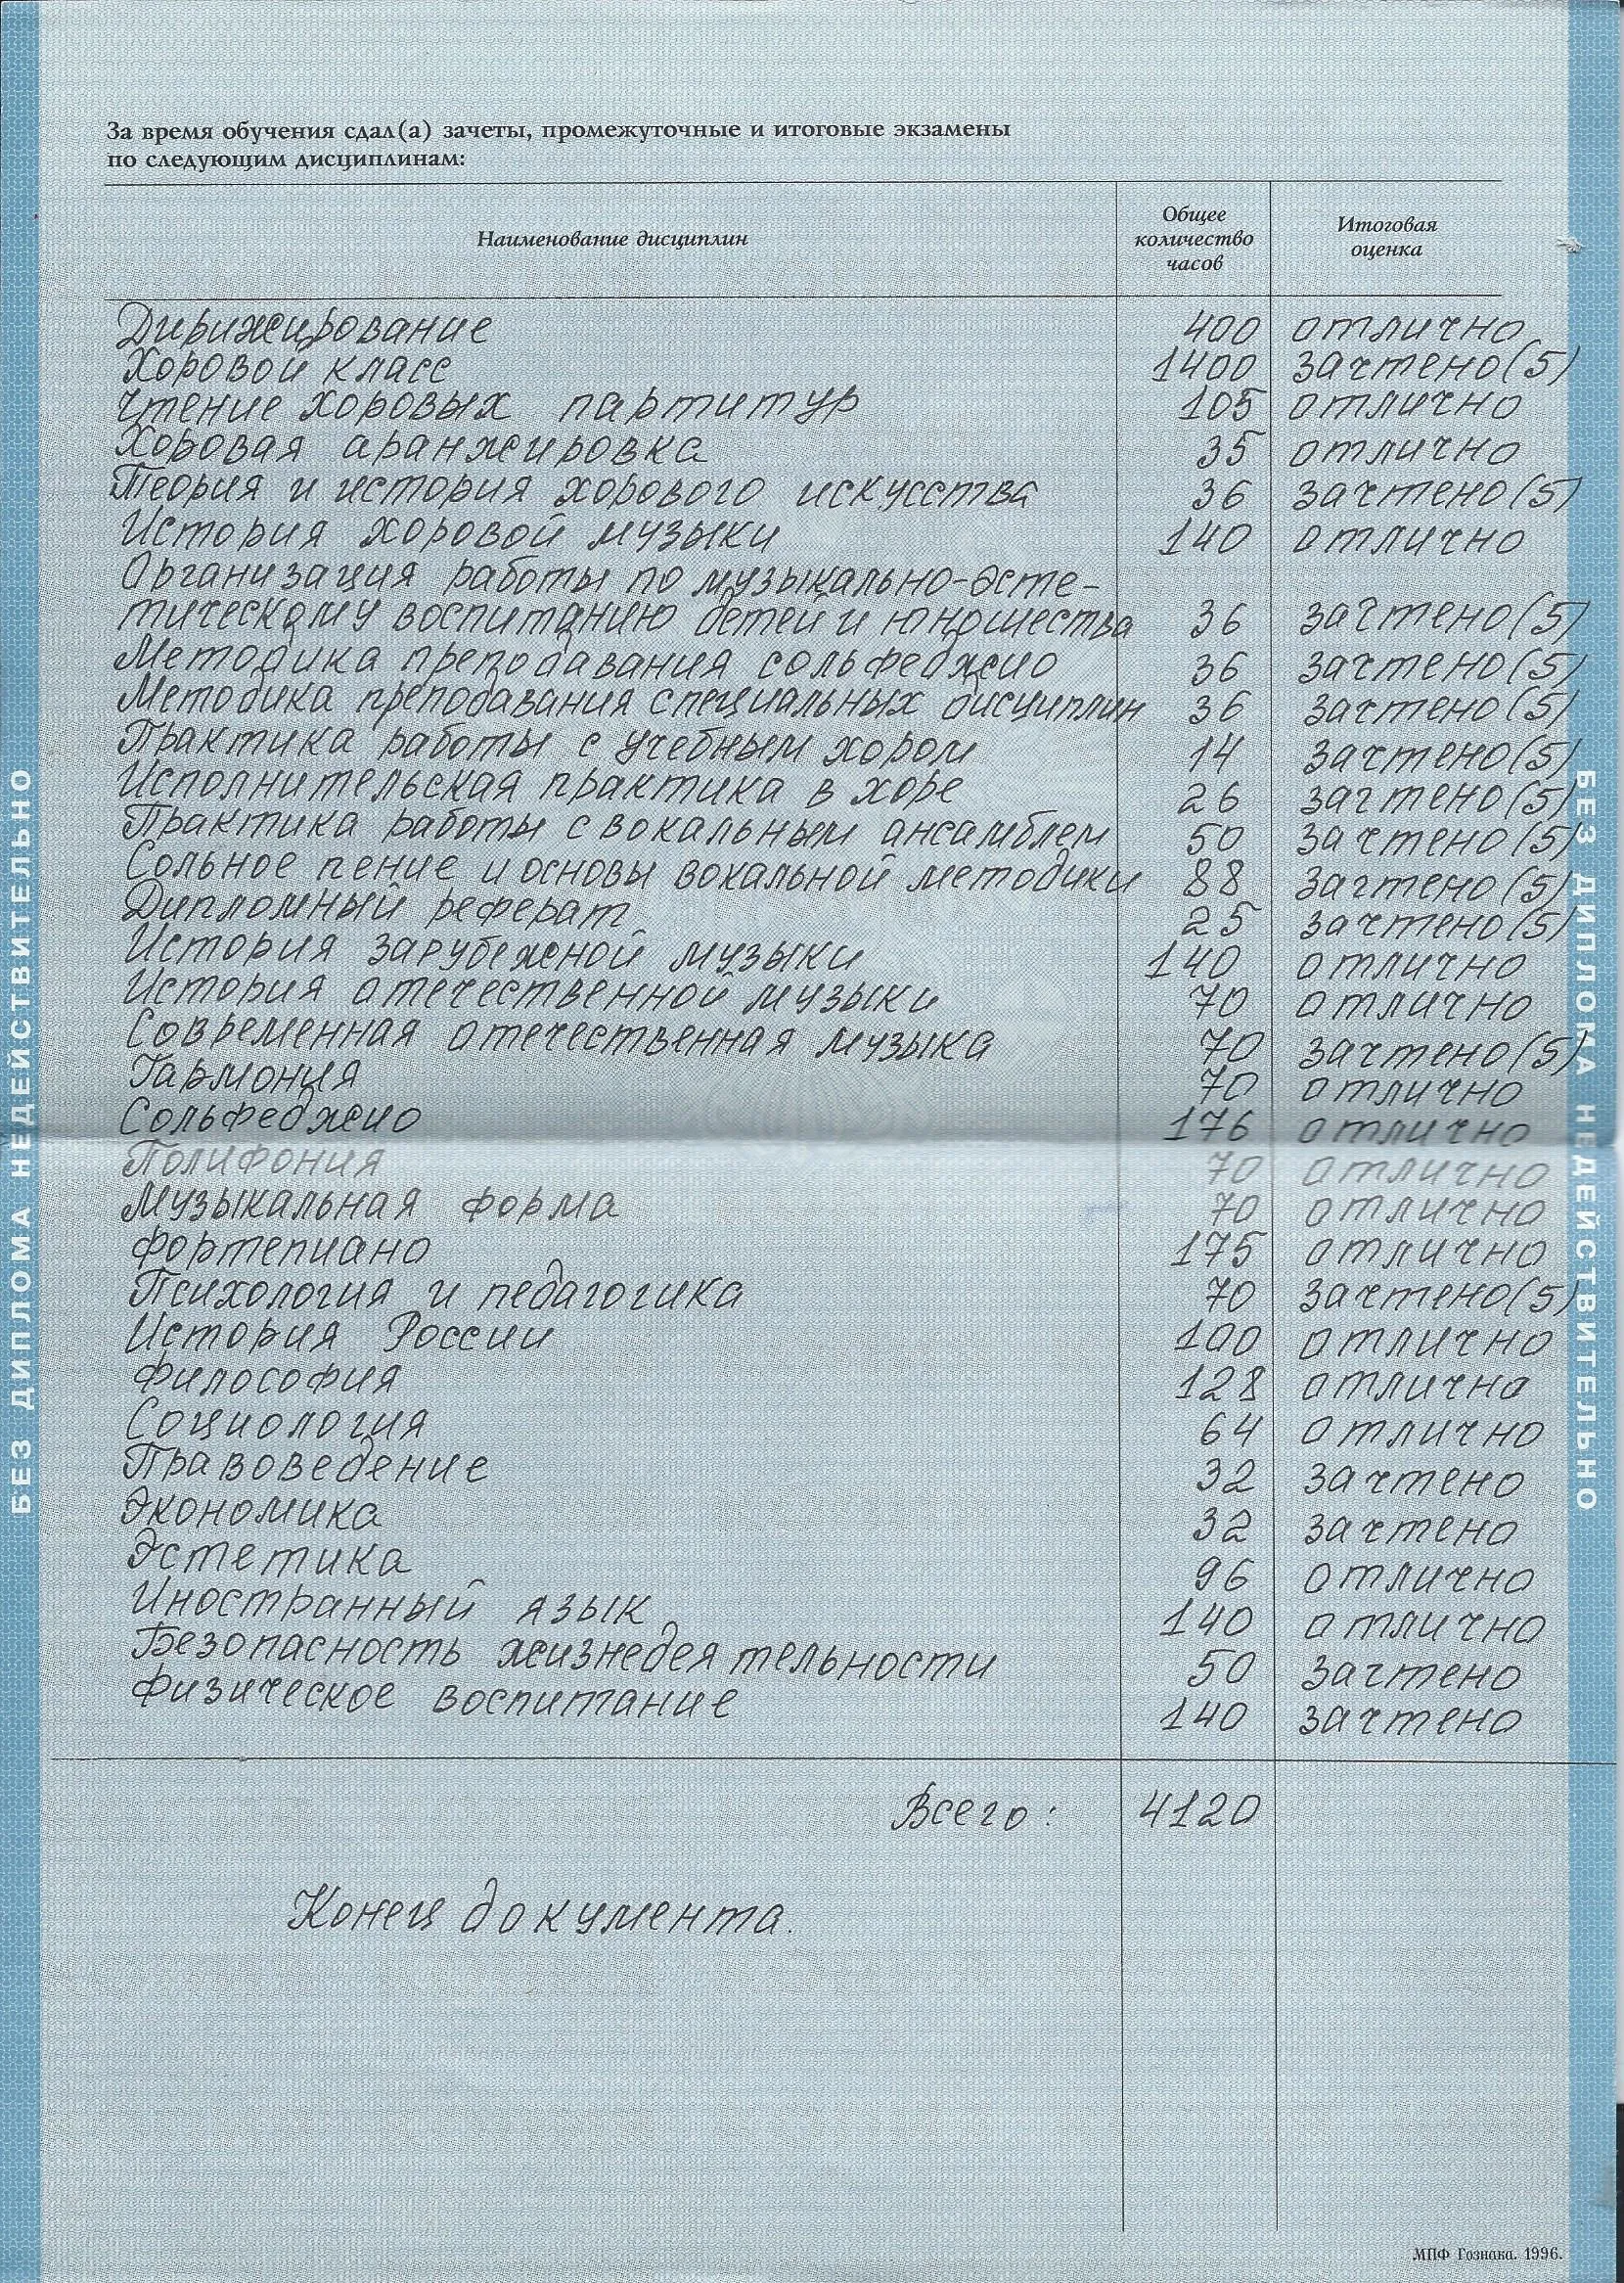 За время обучения сдал(а) зачеты, промежуточные и итоговые экзамены
по следующим дисциплинам:
Наименование дисциплин Общее количество часов Итоговая оценка
Дирижирование 400 отлично
Хоровой класс 1400 зачтено (5)
Чтение хоровых партитур 105 отлично
Хоровая аранжировка 35 отлично
Теория и история хорового искусства 36 зачтено (5)
История хоровой музыки 140 отлично
Организация работы по музыкально-эсте-
тическому воспитанию детей и юношества 36 зачтено (5)
Методика преподавания сольфеджио 36 зачтено (5)
Методика преподавания специальных дисциплин 36 зачтено (5)
Практика работы с учебным хором 14 зачтено (5)
Исполнительская практика в хоре 26 зачтено (5)
Практика работы с вокальным ансамблем 50 зачтено (5)
Сольное пение и основы вокальной методики 88 зачтено (5)
Дипломный реферат 25 зачтено (5)
История зарубежной музыки 140 отлично
История отечественной музыки 70 отлично
Современная отечественная музыка 70 зачтено (5)
Гармония 70 отлично
Сольфеджио 176 отлично
Полифония 70 отлично
Музыкальная форма 70 отлично
Фортепиано 175 отлично
Психология и педагогика 70 зачтено (5)
История России 100 отлично
Философия 128 отлично
Социология 64 отлично
Правоведение 32 зачтено
Экономика 32 зачтено
Эстетика 96 отлично
Иностранный язык 140 отлично
Безопасность жизнедеятельности 50 зачтено
Физическое воспитание 140 зачтено
Всего: 4120
Конец документа.
МПФ Гознака. 1996.
БЕЗ ДИПЛОМА НЕДЕЙСТВИТЕЛЬНО
БЕЗ ДИПЛОМА НЕДЕЙСТВИТЕЛЬНО